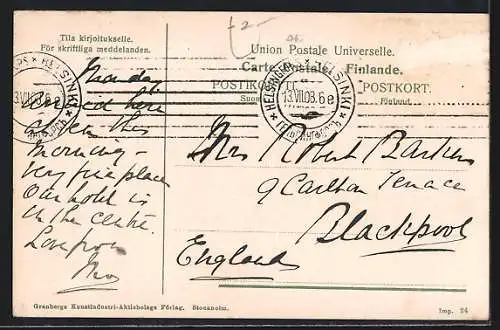 Tila kirjoitukselle.
För skriftliga meddelanden.
Union Postale Universelle.
Carte Postale. Finlande.
POSTIKORTTI. POSTKORT.
Suomi. Finland.
HELSINGFORS * HELSINKI
13.VII.08. 6 e
Monday
Arrived here
at ten this
morning -
Very fine place
Our hotel is
in the centre.
Love from
Mrs Robert
9 Carlton Terrace
Blackpool
England
Granbergs Kunstindustri-Aktiebolags Förlag. Stockholm.
Imp. 24